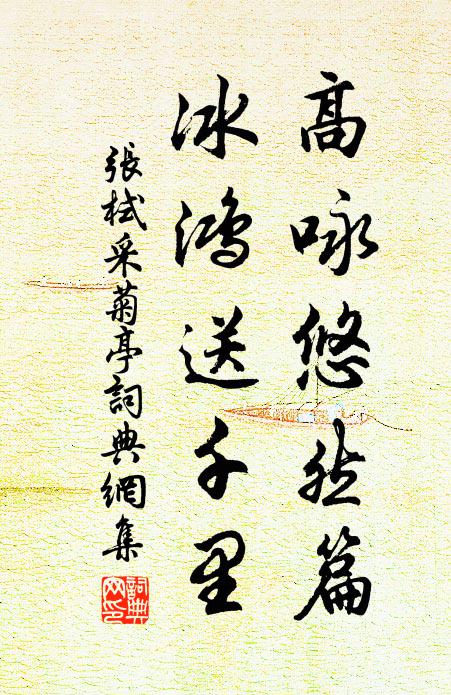 高咏悠然篇
冰鴻送千里
張栻采菊亭詞典網集
詞典
网印